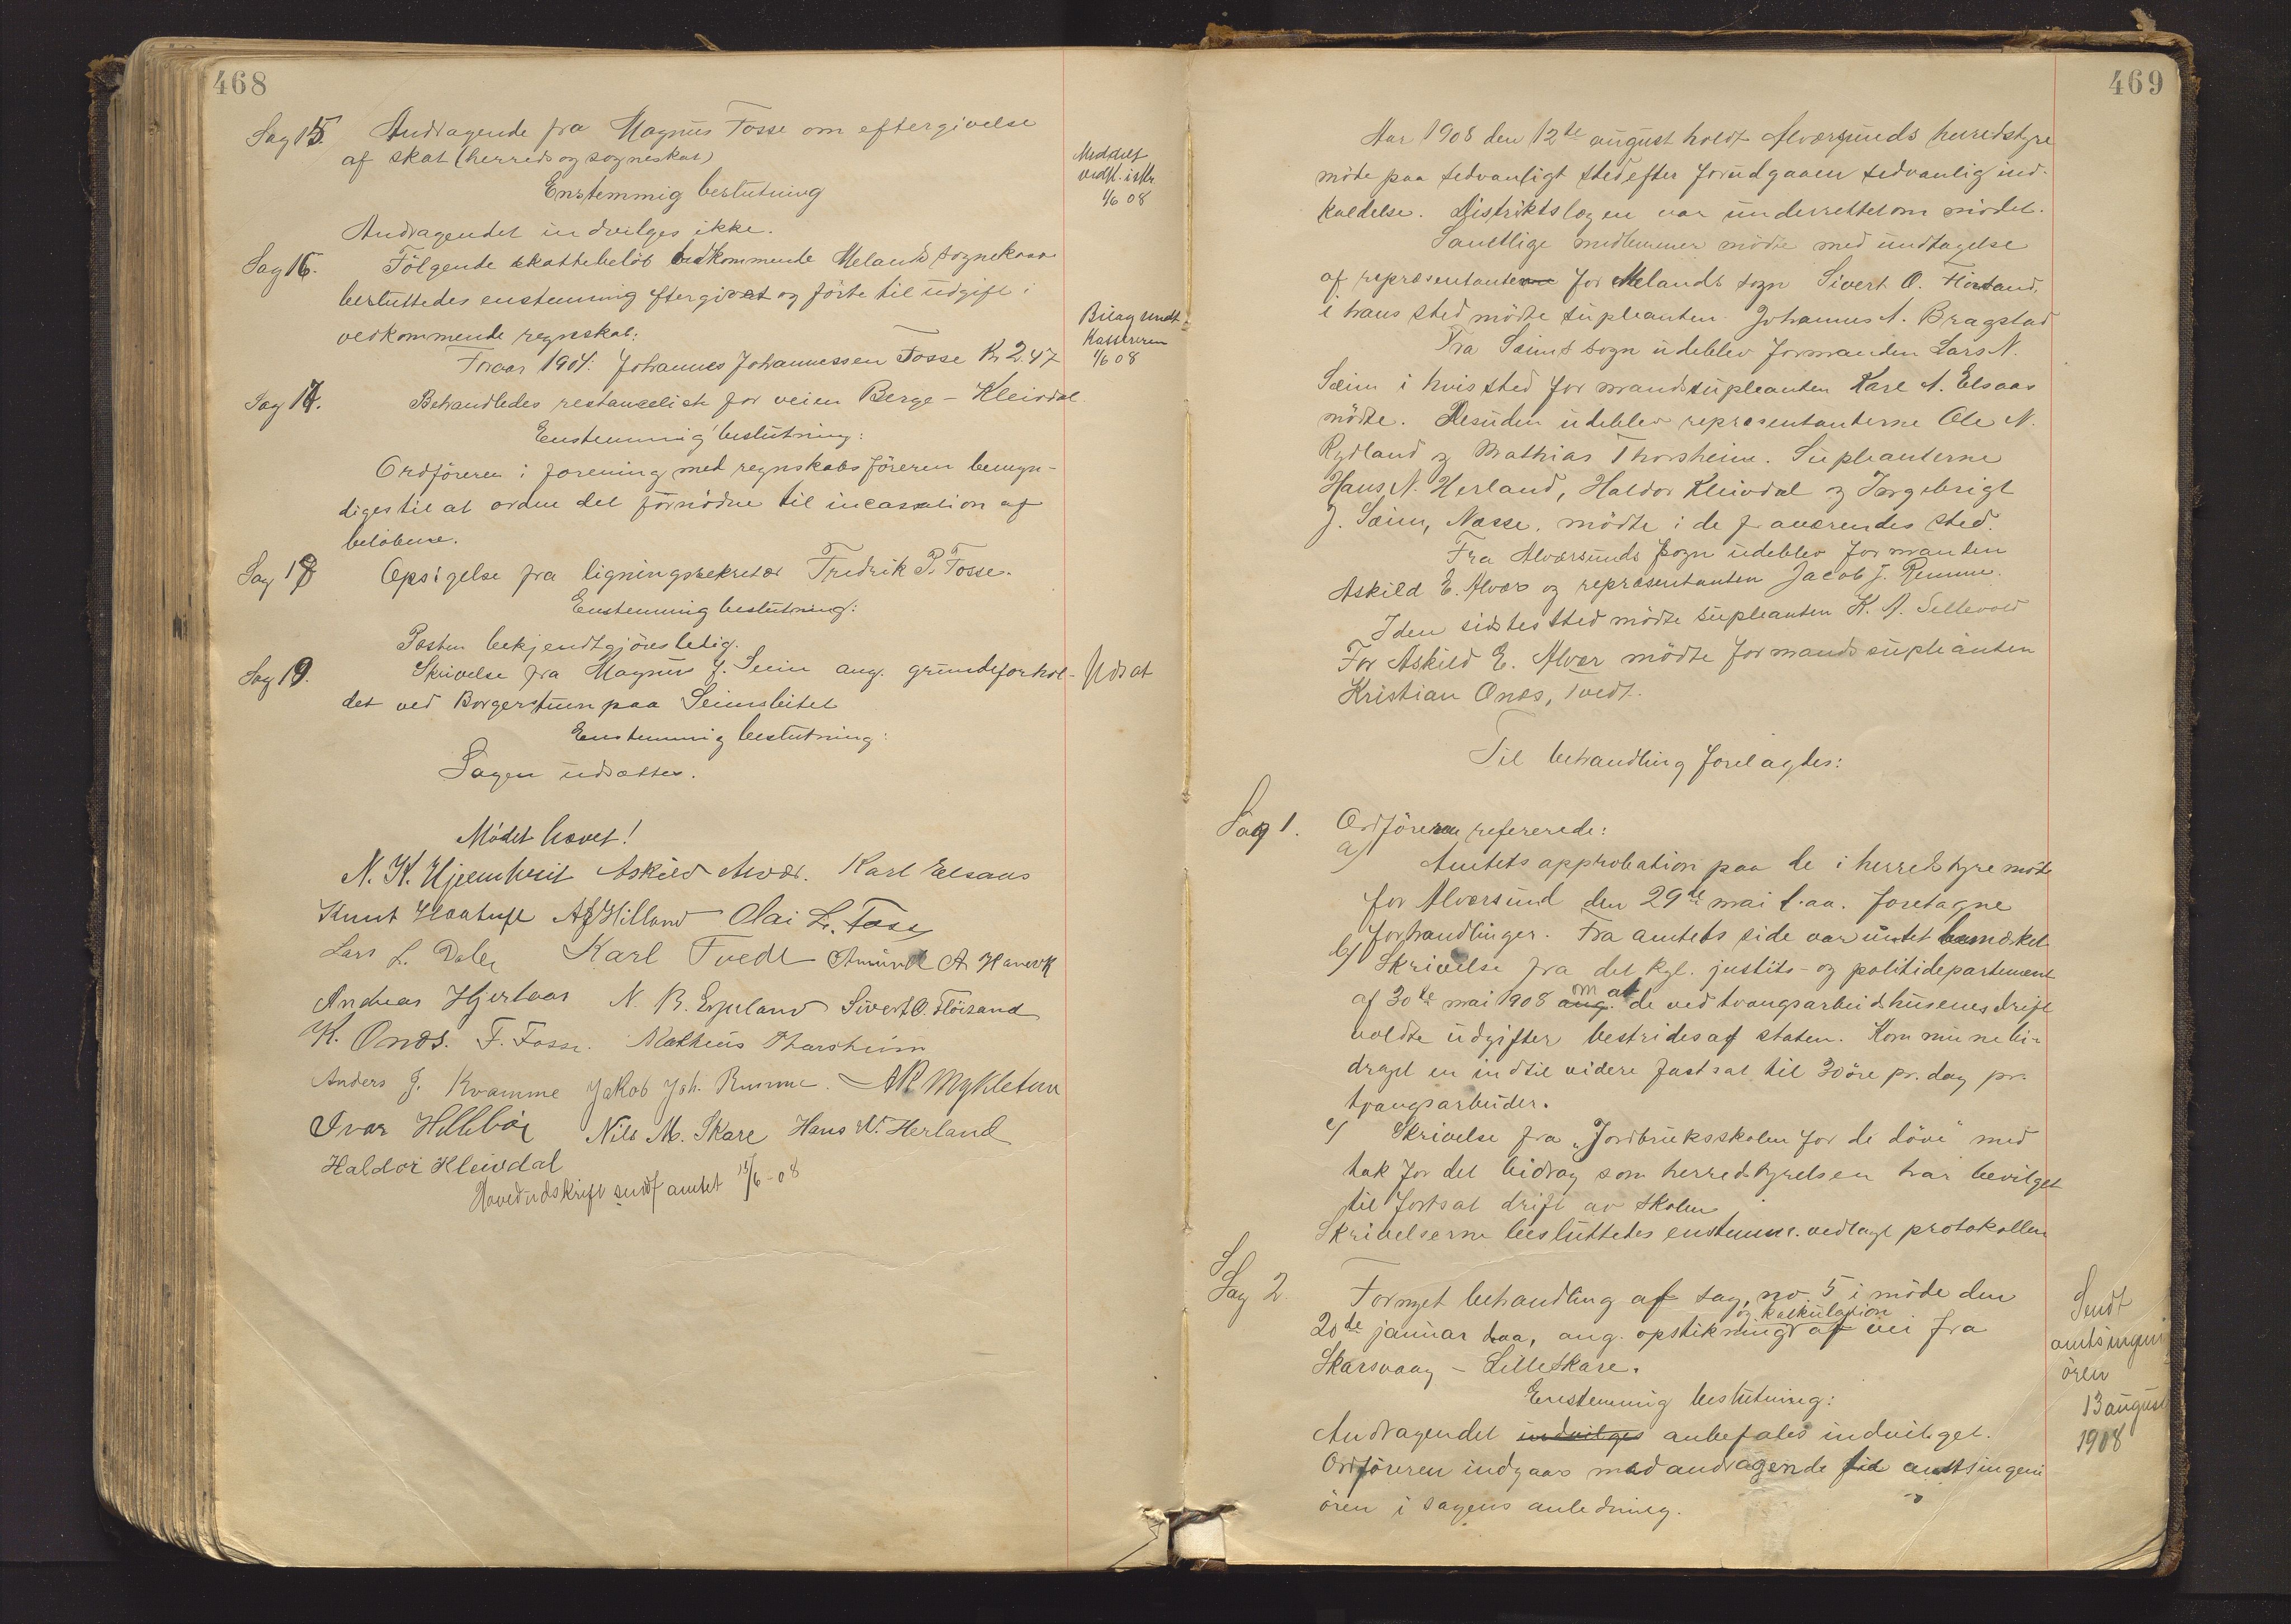 468
Sag 15. Andragende fra Magnus Fosse om eftergivelse
af skat (herreds og sogneskat)
Meddelt
vedk. i skr.
1/6 08
Enstemmig beslutning
Andragendet indvilges ikke.
Sag 16. Följende skattebelöb vedkommende Melands sognekasse
besluttedes enstemmig eftergivet og förte til udgift i
vedkommende regnskab:
Bilag sendt
Kassereren
1/6 08
Foraar 1904. Johannes Johannessen Fosse Kr 2.47
Sag 17. Behandledes restanceliste for veien Berge - Kleivdal
Enstemmig beslutning:
Ordföreren i forening med regnskabsföreren bemyn-
diges til at ordne det fornödne til incassation af
belöbene.
Sag 18 Opsigelse fra ligningssekretær Fredrik P. Fosse.
Enstemmig beslutning:
Posten bekjendtgjöres ledig.
Sag 19. Skrivelse fra Magnus J. Seim ang. grundeforhol-
Udsat
det ved Borgerstuen paa Seimsleitet
Enstemmig beslutning:
Sagen udsættes.
Mödet hævet!
N. K. Hjelmtveit Askild Alvær. Karl Elsaas
Knut Haatuft A J Hilland Olai L. Fosse
Lars L. Dale Karl Tvedt Amund A Havervk
Andreas Hjertaas N. R. Espeland Sivert O. Flöisand
K. Onæs. F. Fosse. Mathias Thorsheim
Anders J. Kvamme Jakob Joh. Remme. A R Mykletun
Ivar Hillebö Nils M. Skare Hans N. Herland
Haldor Kleivdal
Hovedudskrift sendt amtet 13/6-08
469
Aar 1908 den 12te august holdt Alversunds herredstyre
möte paa sedvanligt sted efter forudgaaen sedvanlig ind-
kaldelse. Distriktslægen var underrettet om mödet.
Samtlige medlemmer mödte med undtagelse
af repræsentanten for Melands sogn Sivert O. Flöisand,
i hans sted mödte supleanten Johannes A. Bragstad
Fra Seims sogn udeblev formanden Lars N.
Seim i hvis sted formandssupleanten Karl A. Elsaas
mödte. Desuden udeblev repræsentanterne Ole N.
Rydland og Mathias Thorsheim. Supleanterne
Hans N. Herland, Haldor Kleivdal og Ingebrigt
J. Seim, Nesse, mödte i de fraværendes sted.
Fra Alversunds sogn udeblev formanden
Askild E. Alvær og repræsentanten Jacob J. Remme.
I den sidstes sted mödte supleanten K. A. Sellevold
For Askild E. Alvær mödte formandssupleanten
Kristian Onæs, Tvedt.
Til behandling forelagdes:
Sag 1. Ordföreren refererede:
a) Amtets approbation paa de i herredstyremöte
for Alversund den 29de mai d.aa. foretagne
forhandlinger. Fra amtets side var intet bemærket
b) Skrivelse fra det kgl. justits- og politidepartement
af 30te mai 1908 ang. om at de ved tvangsarbeidshusenes drift
voldte udgifter bestrides af staten. Kommunebi-
draget er indtil videre fastsat til 30 öre pr. dag pr.
tvangsarbeider.
c) Skrivelse fra "Jordbruksskolen for de döve" med
tak for det bidrag som herredstyrelsen har bevilget
til fortsat drift av skolen
Skrivelserne besluttedes enstemm. vedlagt protokollen
S
Sag 2. Fornyet behandling af sag no 5 i möde den
20de januar d.aa, ang. opstikning og kalkulation af vei fra
Skarsvaag - Lilleskare.
Enstemmig beslutning:
Andragendet indvilges anbefales indvilget.
Ordföreren indgaar med andragende til amtsingeni
ören i sagens anledning.
Sendt
amtsingeni
ören
13 august
1908